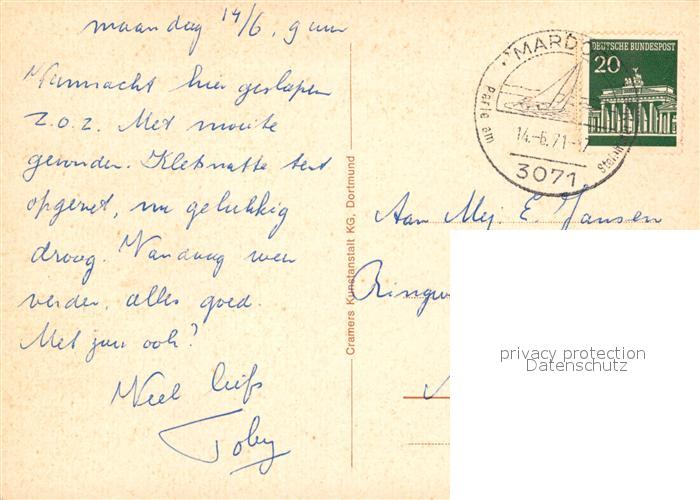 maandag 14/6, 9 uur
Vannacht hier geslapen
z.o.z. Met moeite
gevonden. Kletsnatte tent
opgezet, nu gelukkig
droog. Vandaag weer
verder, alles goed.
Met jou ook?
Veel liefs
Toby
Cramers Kunstanstalt KG, Dortmund
MARDO
Perle am
14.-6.71-17
3071
DEUTSCHE BUNDESPOST
20
Aan Mej. E. Jansen
privacy protection
Datenschutz